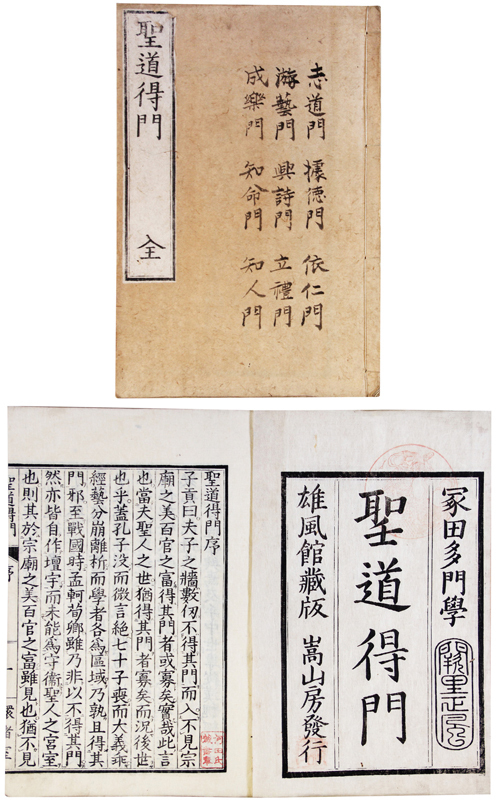 志道門 據徳門 依仁門
游藝門 興詩門 立禮門
成樂門 知命門 知人門
聖道得門 全
冢田多門學
聖道得門
雄風館藏版 嵩山房發行
聖道得門序
子貢曰夫子之牆數仞不得其門而入不見宗
廟之美百官之富得其門者或寡矣實哉此言
也當夫聖人之世猶得其門者寡矣而況後世
也乎蓋孔子沒而微言絕七十子喪而大義乖
經藝分崩離析而學者各爲區域乃孰且得其
門邪至戰國時孟軻荀卿雖乃非以不得其門
然亦皆自作壇宇而未能爲守衞聖人之宮室
也則其於宗廟之美百官之富雖見也猶不見
聖道得門 序 一